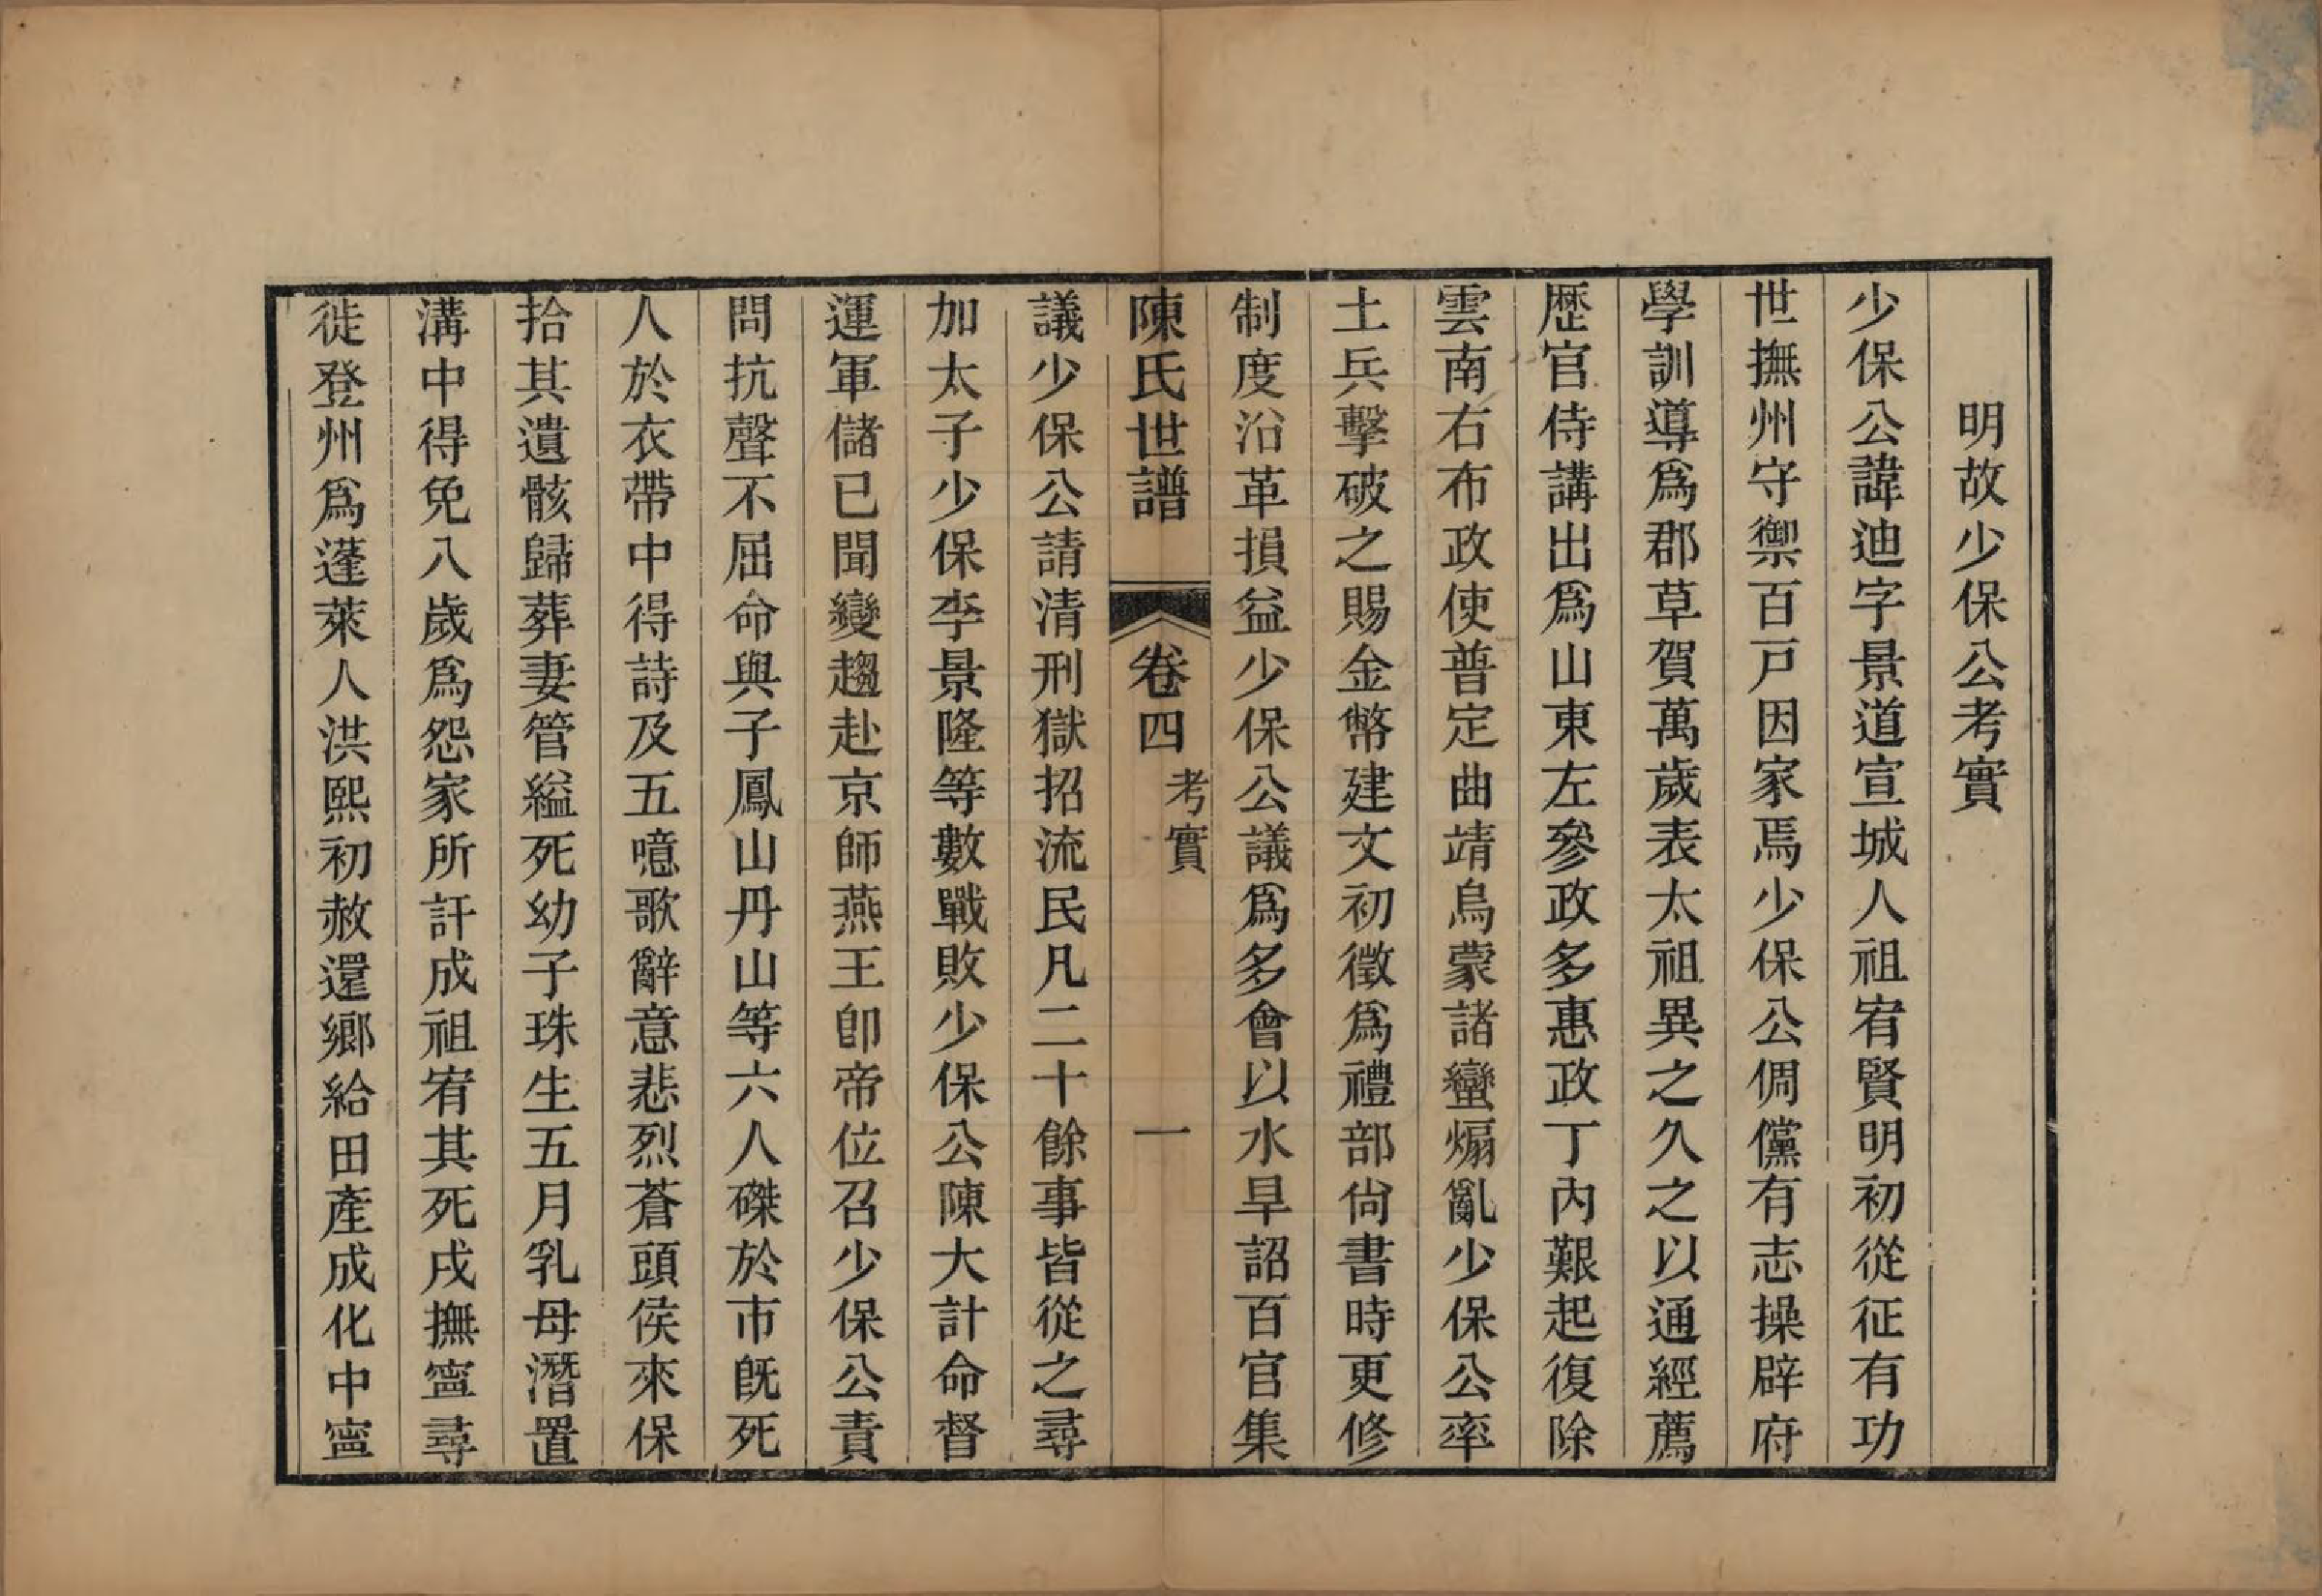 明故少保公考實
少保公諱迪字景道宣城人祖宥賢明初從征有功
世撫州守禦百戸因家焉少保公倜儻有志操辟府
學訓導爲郡草賀萬歲表太祖異之久之以通經薦
歷官侍講出爲山東左參政多惠政丁內艱起復除
雲南右布政使普定曲靖烏蒙諸蠻煽亂少保公率
土兵擊破之賜金幣建文初徵爲禮部尙書時更修
制度沿革損益少保公議爲多會以水旱詔百官集
陳氏世譜 卷四 考實 一
議少保公請清刑獄招流民凡二十餘事皆從之尋
加太子少保李景隆等數戰敗少保公陳大計命督
運軍儲已聞變趨赴京師燕王卽帝位召少保公責
問抗聲不屈命與子鳳山丹山等六人磔於市旣死
人於衣帶中得詩及五噫歌辭意悲烈蒼頭侯來保
拾其遺骸歸葬妻管縊死幼子珠生五月乳母潛置
溝中得免八歲爲怨家所訐成祖宥其死戍撫寧尋
徙登州爲蓬萊人洪熙初赦還鄉給田產成化中寧